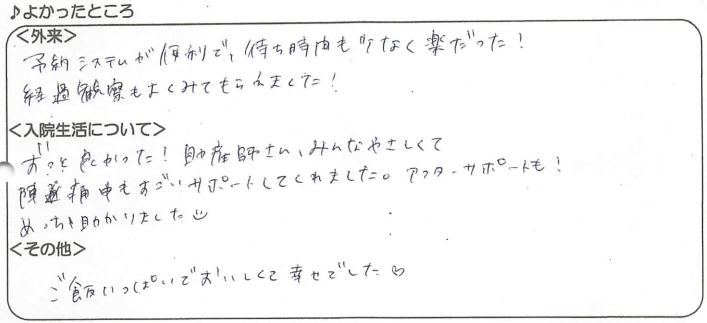 ♪よかったところ
<外来>
予約システムが便利で、待ち時間も少なく楽だった!
経過観察もよくみてもらえました!
<入院生活について>
ずっと良かった! 助産師さん、みんなやさしくて
陣痛中もすごいサポートしてくれました。アフターサポートも!
めっちゃ助かりました
<その他>
ご飯いっぱいでおいしくて幸せでした♡